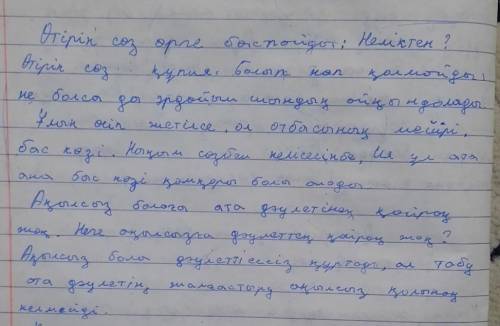 Өтірік сөз өрге баспайды. Неліктен?
Өтірік сөз құпия болып көп қалмайды,
не болса да әрдайым шындық айқындалады
Ұлың өсіп жетілсе, ол отбасының мейірі,
бас көзі. Нақыл сөзбен келісесіңбе, Ия ұл ата
ана бас көзі қамқоры бола алады.
Ақылсыз балаға ата дәулетінен қайран
жоқ. Неге ақылсызға дәулеттен қайран жоқ?
Ақылсыз бала дәулетті ессіз құртады, ал табу
ата дәулетін, жалғастыру ақылсыз қолынан
келмейді.